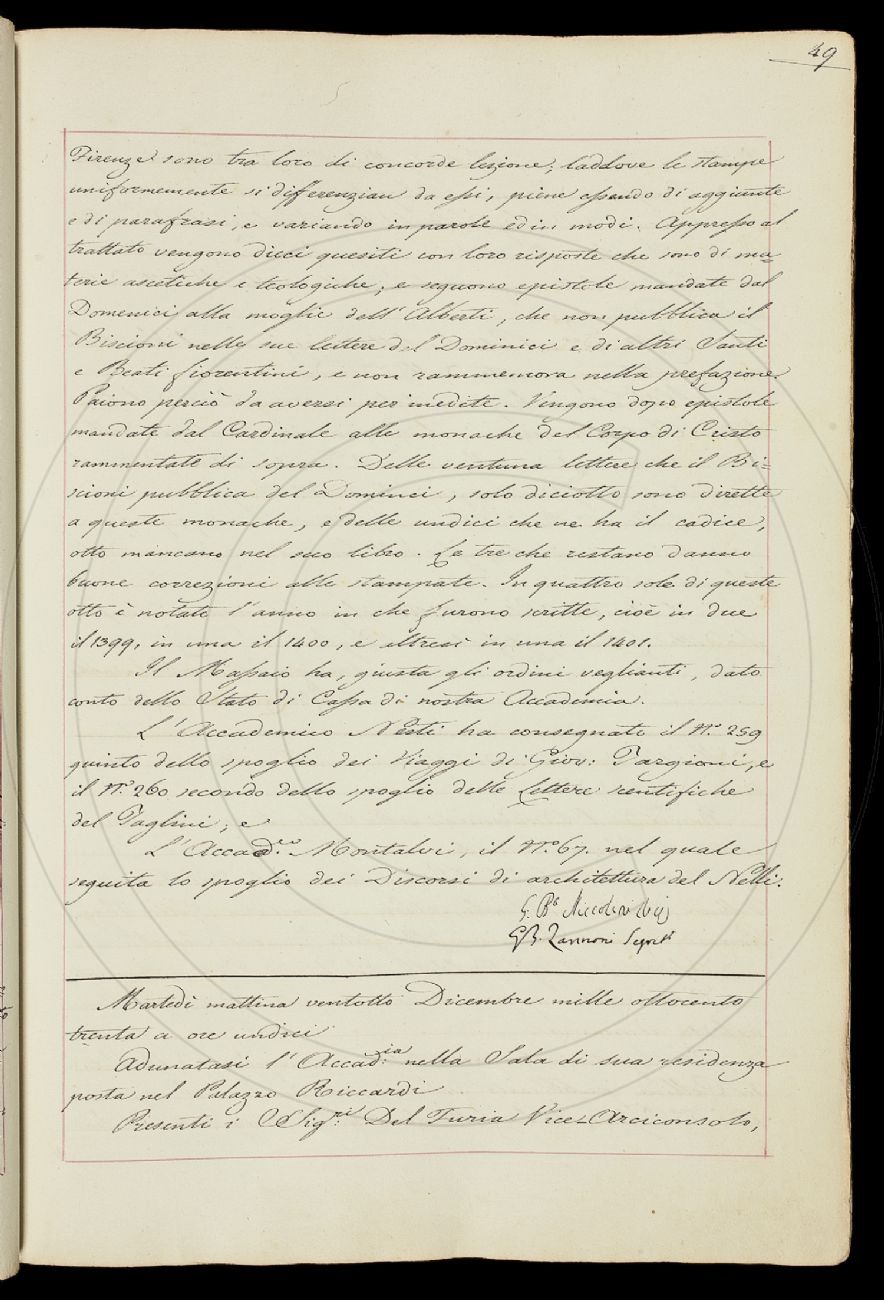 49
Firenze sono tra loro di concorde lezione, laddove le stampe
uniformemente si differenzian da essi, piene essendo di aggiunte
e di parafrasi, e variando in parole ed in modi. Appresso al
trattato vengono dieci quesiti con loro risposte che sono di ma=
terie ascetiche e teologiche; e seguono epistole mandate dal
Domenici alla moglie dell'Alberti, che non pubblica il
Biscioni nelle sue lettere del Dominici e di altri Santi
e Beati fiorentini, e non rammemora nella prefazione.
Paiono perciò da aversi per inedite. Vengono dopo epistole
mandate dal Cardinale alle monache del Corpo di Cristo
rammentate di sopra. Delle ventuna lettere che il Bi=
scioni pubblica del Dominici, solo diciotto sono dirette
a queste monache, e delle undici che ne ha il codice,
otto mancano nel suo libro. Le tre che restano danno
buone correzioni alle stampate. In quattro sole di queste
otto è notato l'anno in che furono scritte, cioè in due
il 1399, in una il 1400, e altresì in una il 1401.
Il Massaio ha, giusta gli ordini veglianti, dato
conto dello Stato di Cassa di nostra Accademia.
L'Accademico Nesti ha consegnato il N.º 259
quinto dello spoglio dei Viaggi di Giov: Targioni, e
il N.º 260 secondo dello spoglio delle Lettere scentifiche
del Taglini; e
L'Accad.co Montalvi, il N.º 67. nel quale
seguita lo spoglio dei Discorsi di architettura del Nelli.
G. B. Niccolini
G. B. Zannoni Segret.
Martedì mattina ventotto Dicembre mille ottocento
trenta a ore undici
Adunatasi l'Accad:ia nella Sala di sua residenza
posta nel Palazzo Riccardi
Presenti i Sig:ri Del Furia Vice-Arciconsolo,